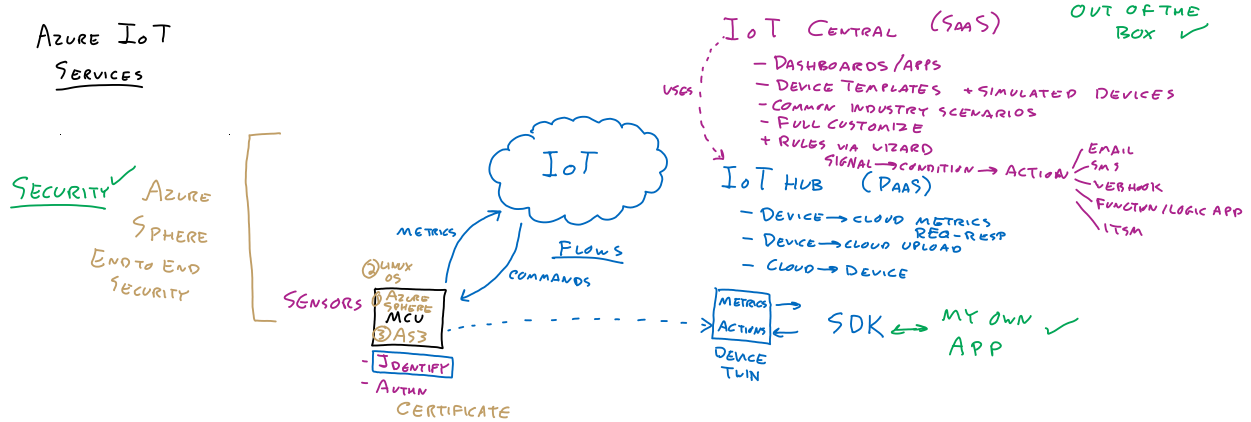 AZURE IOT
SERVICES
SECURITY
AZURE
SPHERE
END TO END
SECURITY
SENSORS
② LINUX
OS
① AZURE
SPHERE
MCU
③ AS3
- IDENTIFY
- AUTHN
CERTIFICATE
IOT
METRICS
FLOWS
COMMANDS
IOT CENTRAL (SAAS)
OUT OF THE
BOX
USES
- DASHBOARDS/APPS
- DEVICE TEMPLATES + SIMULATED DEVICES
- COMMON INDUSTRY SCENARIOS
- FULL CUSTOMIZE
+ RULES VIA WIZARD
SIGNAL → CONDITION → ACTION
EMAIL
SMS
WEBHOOK
FUNCTION/LOGIC APP
ITSM
IOT HUB (PAAS)
- DEVICE → CLOUD METRICS
REQ-RESP
- DEVICE → CLOUD UPLOAD
- CLOUD → DEVICE
METRICS
ACTIONS
DEVICE
TWIN
SDK
MY OWN
APP